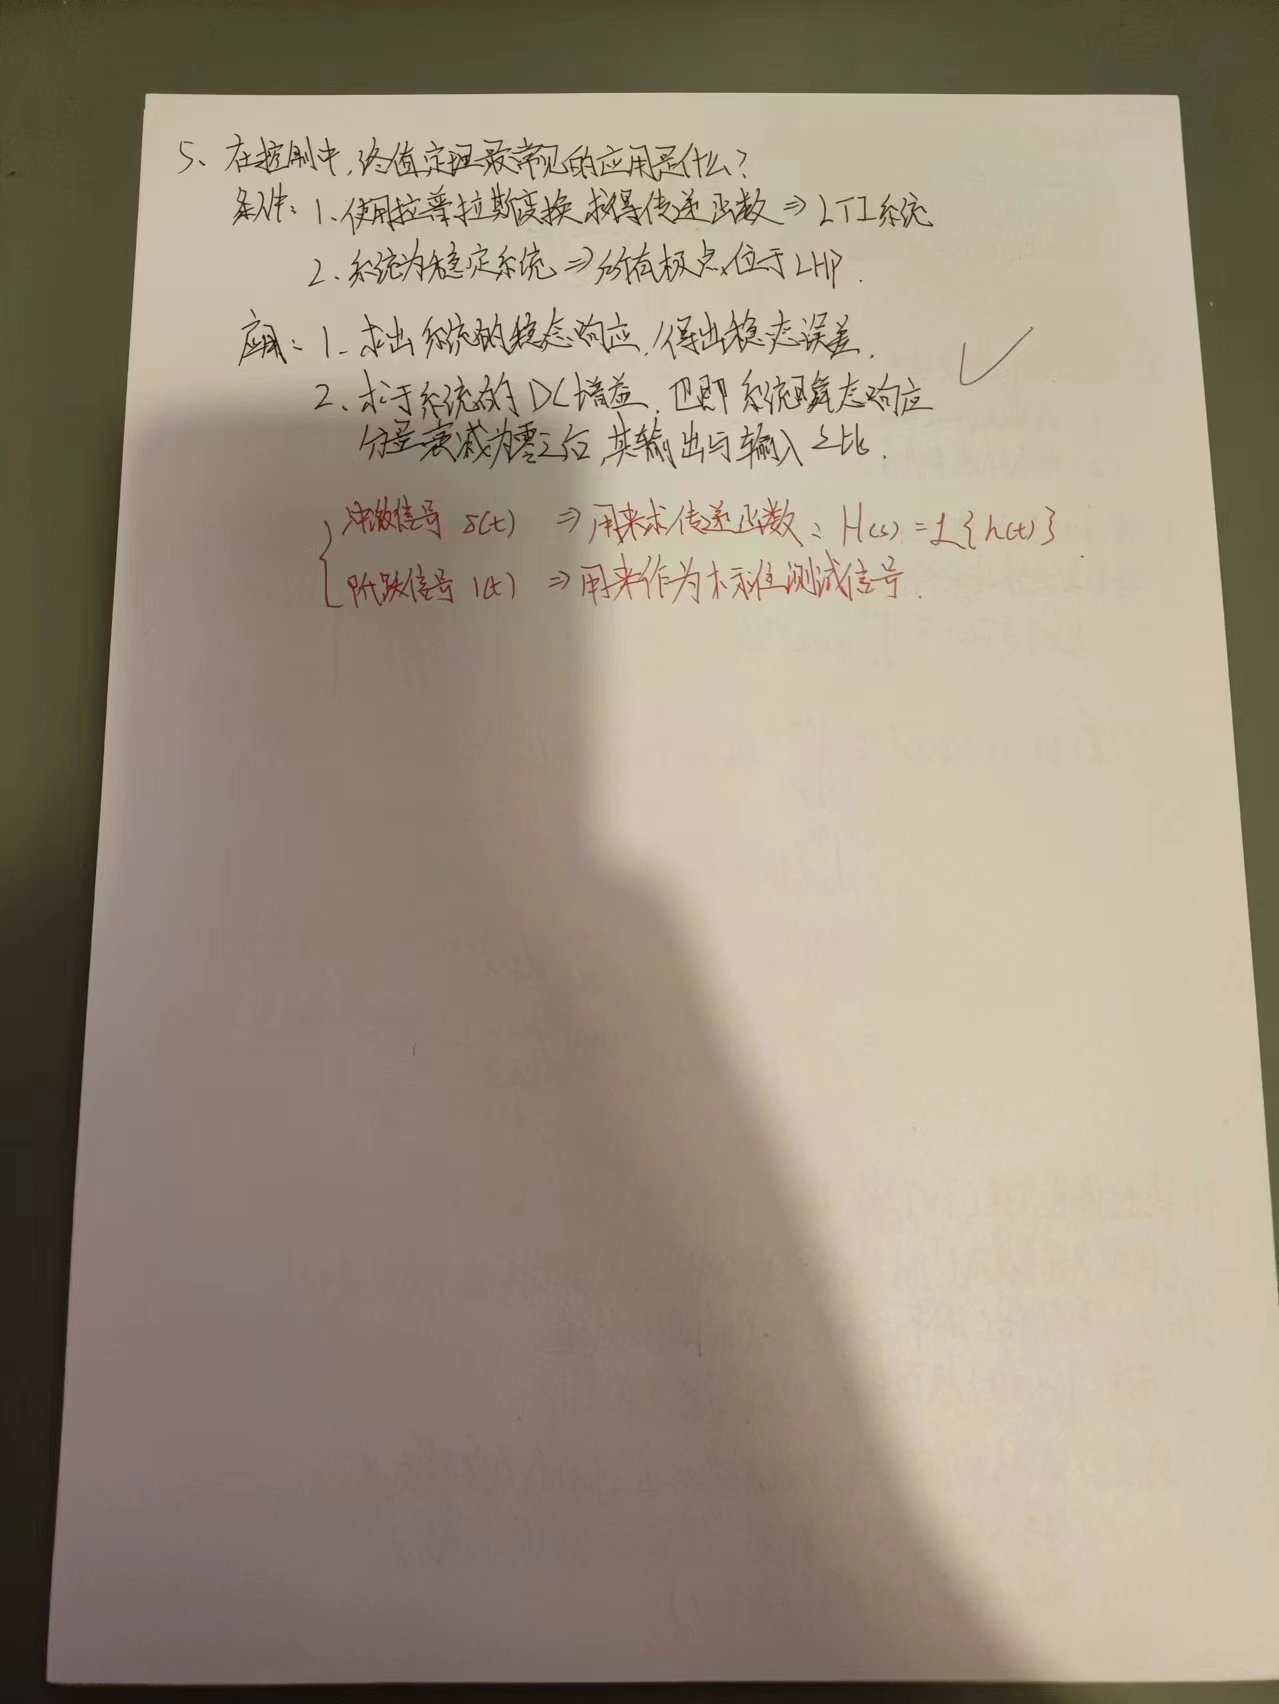 5、在控制中,终值定理最常见的应用是什么?
条件: 1、使用拉普拉斯变换求得传递函数 ⇒ LTI系统
2、系统为稳定系统 ⇒ 所有极点位于LHP.
应用: 1、求出系统的稳态响应,得出稳态误差.
2、求于系统的DC增益,也即系统瞬态响应
分量衰减为零之后,其输出与输入之比.
冲激信号 δ(t) ⇒ 用来求传递函数: H(s) = L{h(t)}
阶跃信号 1(t) ⇒ 用来作为标准测试信号.